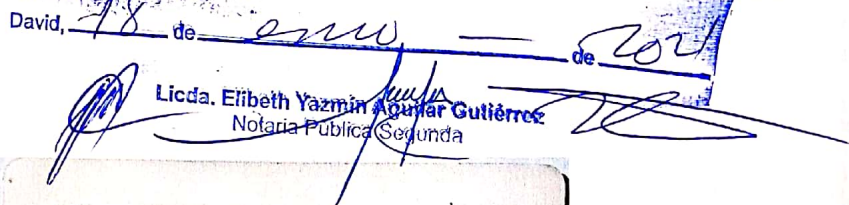 David, 18 de enero de 2021
Licda. Elibeth Yazmín Aguilar Gutiérrez
Notaria Pública Segunda